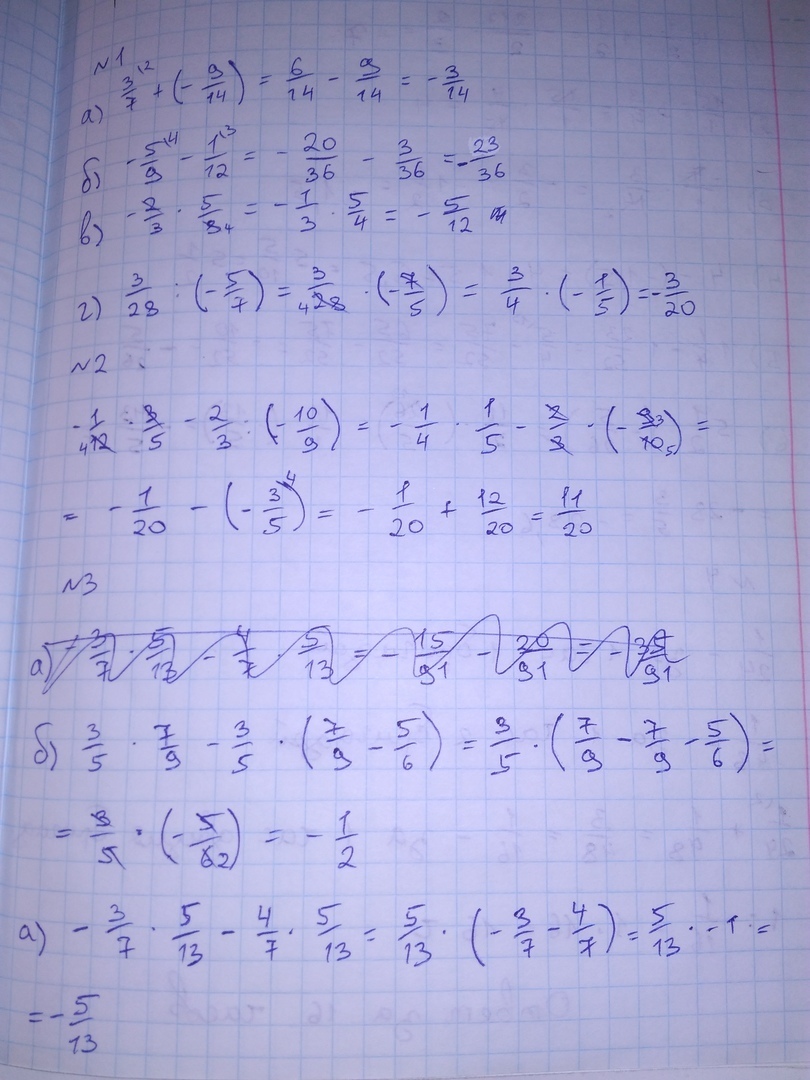 №1
а) 3/7 \2 + (- 9/14) = 6/14 - 9/14 = - 3/14
б) - 5/9 \4 - 1/12 \3 = - 20/36 - 3/36 = - 23/36
в) - 2/3 · 5/8 4 = - 1/3 · 5/4 = - 5/12
г) 3/28 : (- 5/7) = 3/4 28 · (- 7/5) = 3/4 · (- 1/5) = - 3/20
№2
- 1/4 12 · 3/5 - 2/3 : (- 10/9) = - 1/4 · 1/5 - 2/3 · (- 9 3/10 5) =
= - 1/20 - (- 3/5 \4) = - 1/20 + 12/20 = 11/20
№3
а) - 3/7 · 5/13 - 4/7 · 5/13 = - 15/91 - 20/91 = - 35/91
б) 3/5 · 7/9 - 3/5 · (7/9 - 5/6) = 3/5 · (7/9 - 7/9 - 5/6) =
= 3/5 · (- 5/6 2) = - 1/2
а) - 3/7 · 5/13 - 4/7 · 5/13 = 5/13 · (- 3/7 - 4/7) = 5/13 · - 1 =
= - 5/13